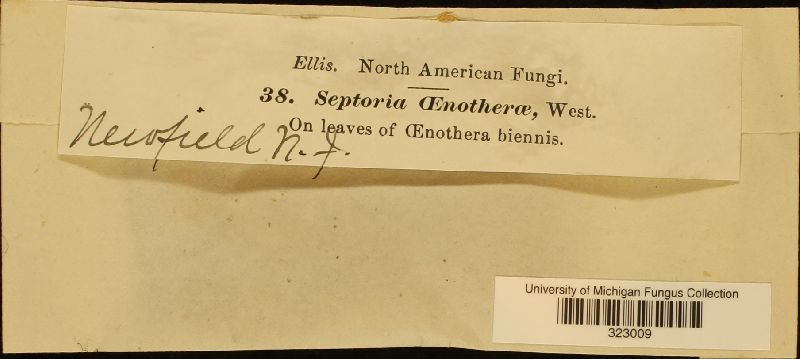 Ellis. North American Fungi.
38. Septoria Œnotheræ, West.
On leaves of Œnothera biennis.
Newfield N.J.
University of Michigan Fungus Collection
323009